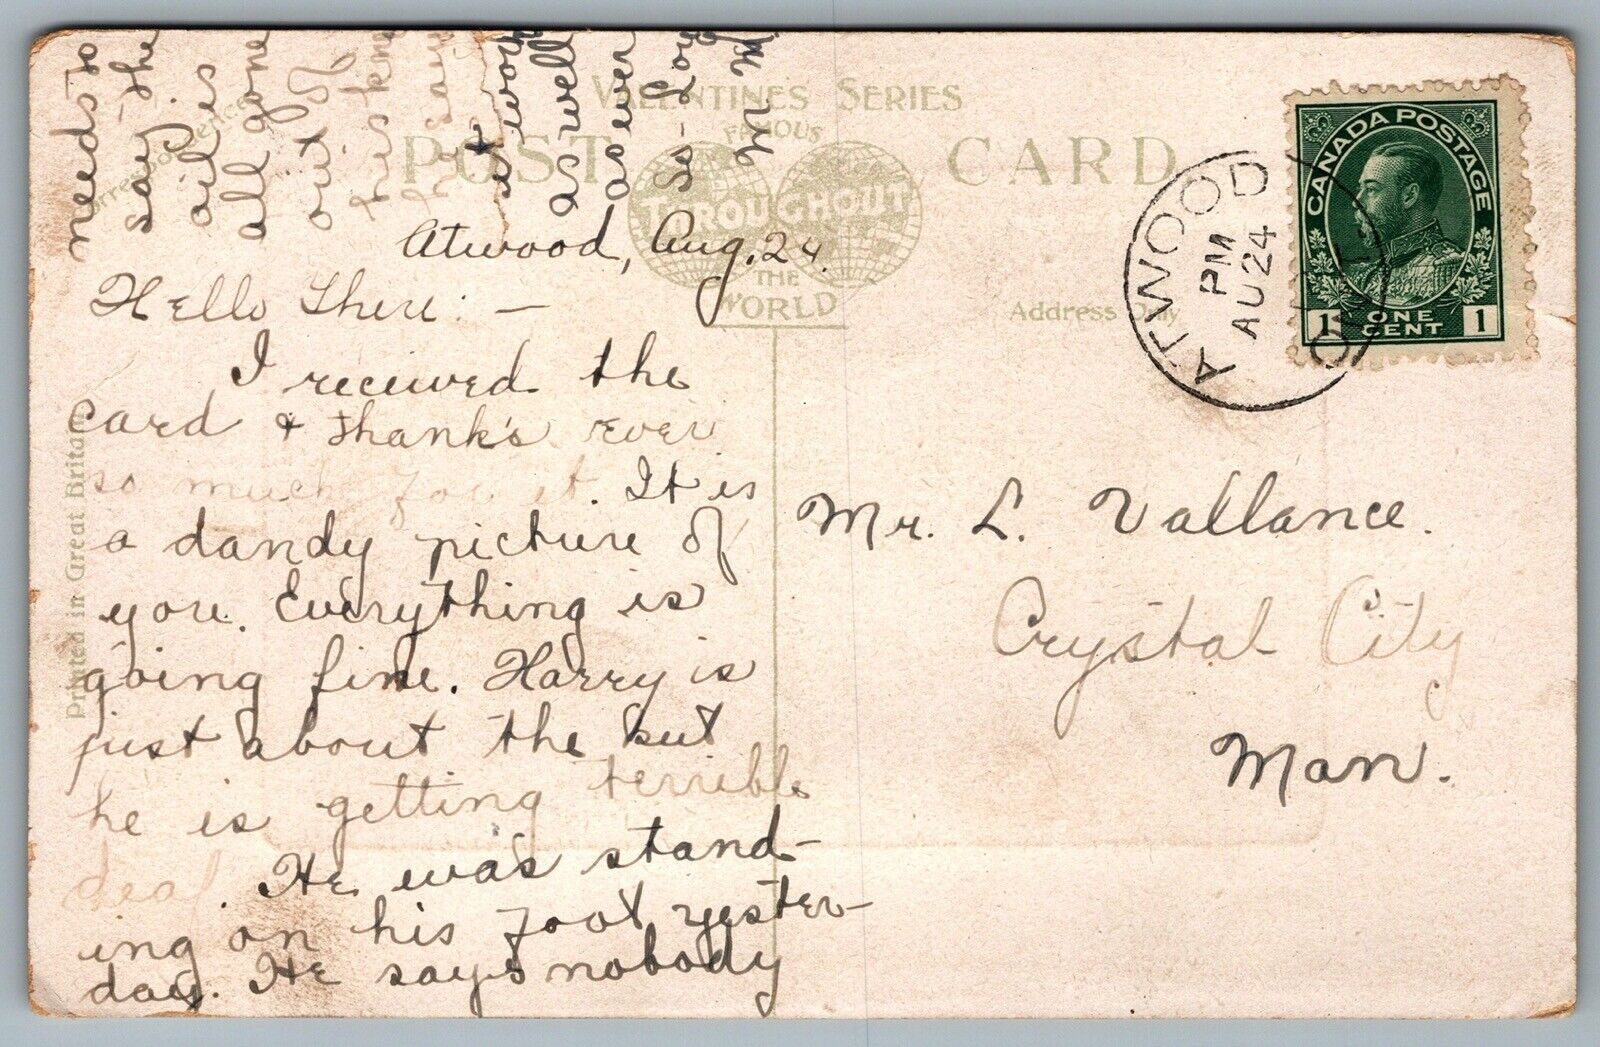 VALENTINES SERIES
FAMOUS
POST CARD
THROUGHOUT
THE
WORLD
Correspondence
Address Only
Printed in Great Britain
ATWOOD
PM
AU 24
ONT
CANADA POSTAGE
1 ONE CENT 1
Atwood, Aug. 24.
Hello There: —
I received the
card & thank's ever
so much for it. It is
a dandy picture of
you. Everything is
going fine. Harry is
just about the but
he is getting terrible
deaf. He was stand-
ing on his foot yester-
day. He says nobody
needs to
say the
oil is
all gone
out of
his knee
for says
it works
as well
as ever
So-Long
M M
Mr. L. Vallance.
Crystal City
Man.